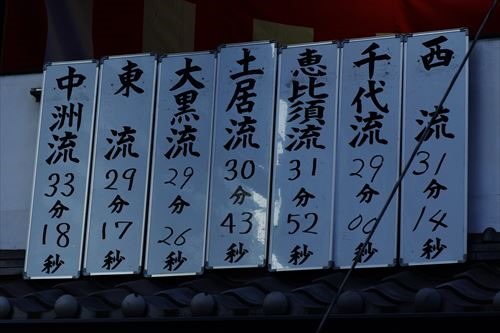 西流 31分14秒
千代流 29分00秒
恵比須流 31分52秒
土居流 30分43秒
大黒流 29分26秒
東流 29分17秒
中洲流 33分18秒